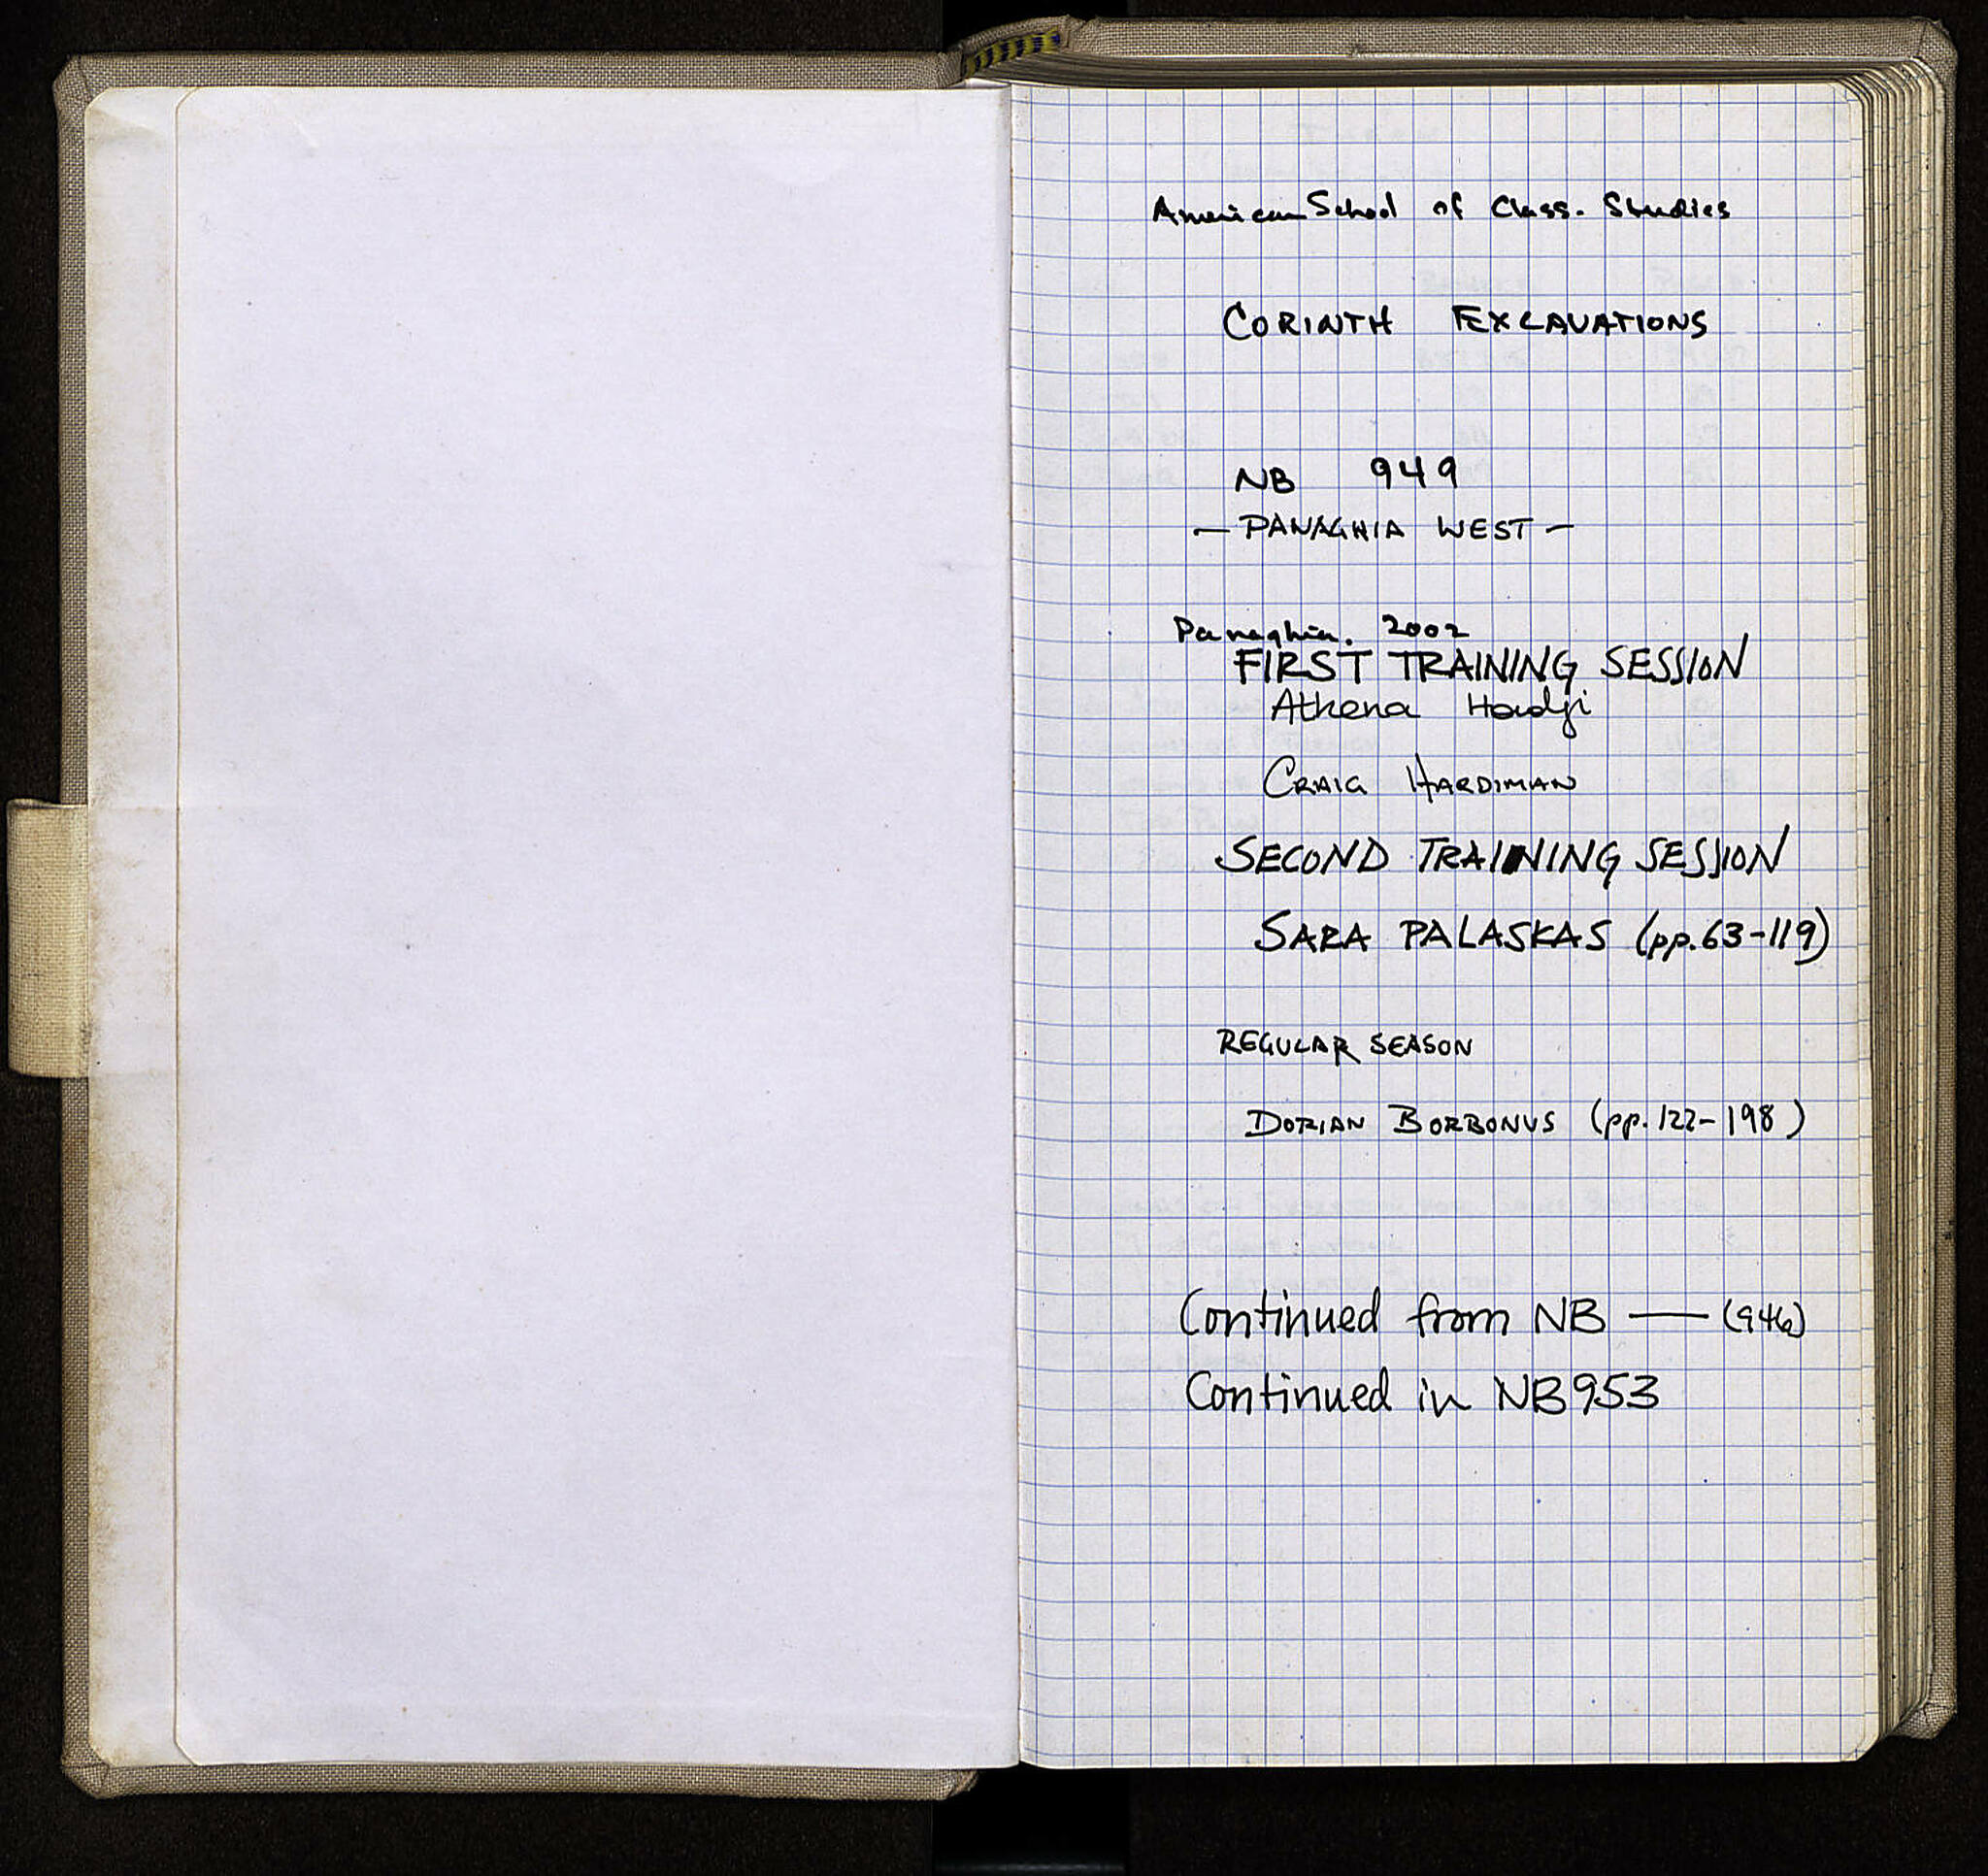 American School of Class. Studies
CORINTH EXCAVATIONS
NB 949
— PANAGHIA WEST —
Panaghia. 2002
FIRST TRAINING SESSION
Athena Hadji
CRAIG HARDIMAN
SECOND TRAINING SESSION
SARA PALASKAS (pp. 63-119)
REGULAR SEASON
DORIAN BORBONUS (pp. 122-198)
Continued from NB — (946)
Continued in NB 953